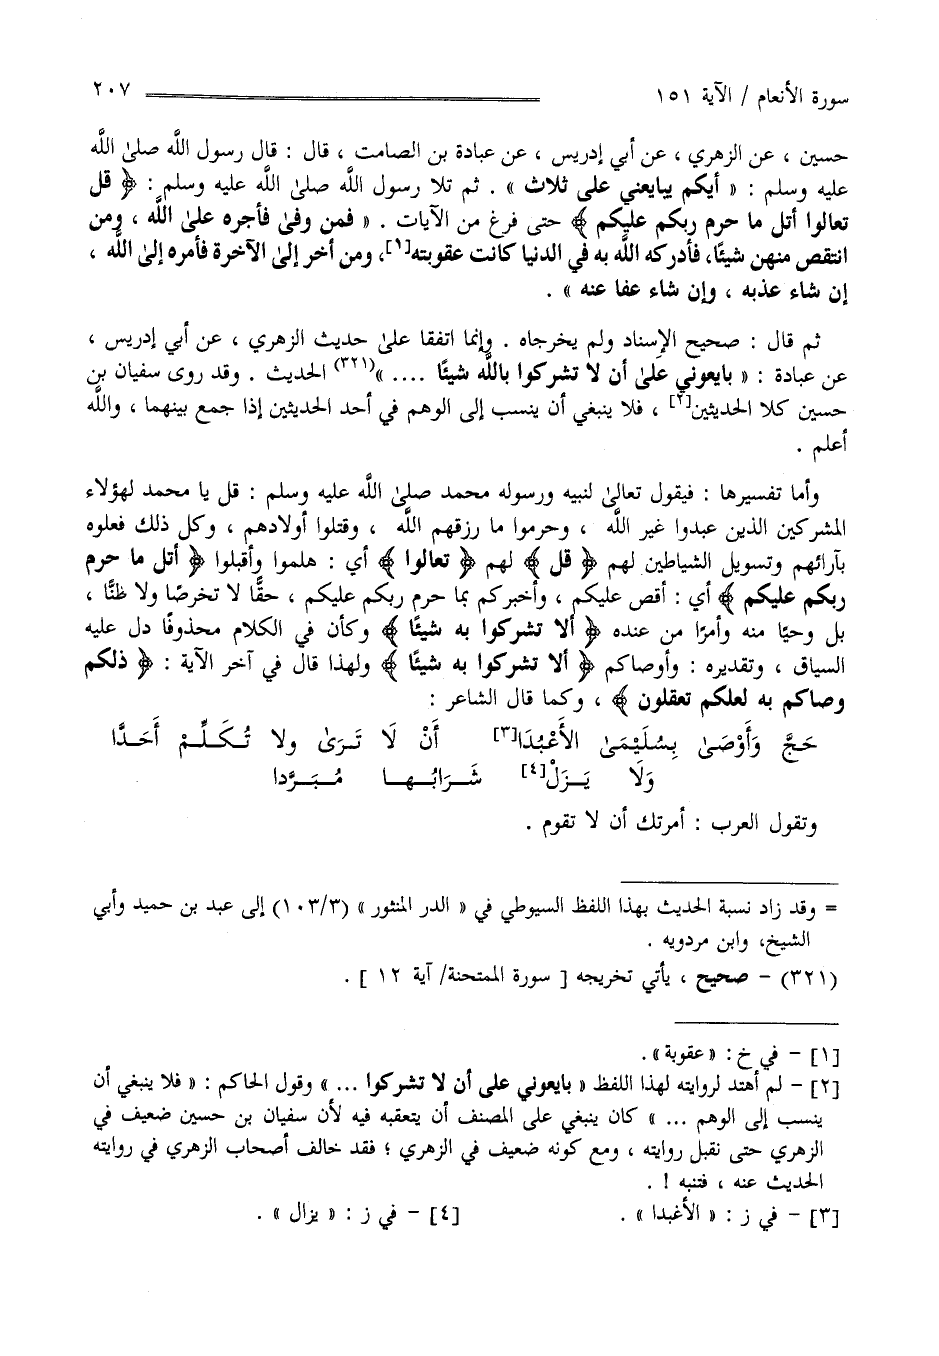 سورة الأنعام / الآية ١٥١ ٢٠٧
حسين ، عن الزهري ، عن أبي إدريس ، عن عبادة بن الصامت ، قال : قال رسول اللَّه صلىٰ اللَّه
عليه وسلم : « أيكم يبايعني على ثلاث » . ثم تلا رسول اللَّه صلىٰ اللَّه عليه وسلم : ﴿ قل
تعالوا أتل ما حرم ربكم عليكم ﴾ حتى فرغ من الآيات . « فمن وفىٰ فأجره علىٰ اللَّه ، ومن
انتقص منهن شيئًا، فأدركه اللَّه به في الدنيا كانت عقوبته[١]، ومن أخر إلىٰ الآخرة فأمره إلىٰ اللَّه ،
إن شاء عذبه ، وإن شاء عفا عنه » .
ثم قال : صحيح الإسناد ولم يخرجاه . وإنما اتفقا علىٰ حديث الزهري ، عن أبي إدريس ،
عن عبادة : « بايعوني علىٰ أن لا تشركوا باللَّه شيئًا .... »(٣٢١) الحديث . وقد روى سفيان بن
حسين كلا الحديثين[٢] ، فلا ينبغي أن ينسب إلى الوهم في أحد الحديثين إذا جمع بينهما ، واللَّه
أعلم .
وأما تفسيرها : فيقول تعالىٰ لنبيه ورسوله محمد صلىٰ اللَّه عليه وسلم : قل يا محمد لهؤلاء
المشركين الذين عبدوا غير اللَّه ، وحرموا ما رزقهم اللَّه ، وقتلوا أولادهم ، وكل ذلك فعلوه
بآرائهم وتسويل الشياطين لهم ﴿ قل ﴾ لهم ﴿ تعالوا ﴾ أي : هلموا وأقبلوا ﴿ أتل ما حرم
ربكم عليكم ﴾ أي : أقص عليكم ، وأخبركم بما حرم ربكم عليكم ، حقًّا لا تخرصًا ولا ظنًّا ،
بل وحيًا منه وأمرًا من عنده ﴿ ألا تشركوا به شيئًا ﴾ وكأن في الكلام محذوفًا دل عليه
السياق ، وتقديره : وأوصاكم ﴿ ألا تشركوا به شيئًا ﴾ ولهذا قال في آخر الآية : ﴿ ذلكم
وصاكم به لعلكم تعقلون ﴾ ، وكما قال الشاعر :
حَجَّ وَأَوْصَىٰ بِسُلَيْمَىٰ الأَعْبُدَا[٣] أَنْ لَا تَرَىٰ ولا تُكَلِّمْ أَحَدًّا
وَلَا يَزَلْ[٤] شَرَابُها مُبَرَّدا
وتقول العرب : أمرتك أن لا تقوم .
= وقد زاد نسبة الحديث بهذا اللفظ السيوطي في « الدر المنثور » (١٠٣/٣) إلى عبد بن حميد وأبي
الشيخ، وابن مردويه .
(٣٢١) – صحيح ، يأتي تخريجه [ سورة الممتحنة/ آية ١٢ ] .
[١] – في خ : « عقوبة » .
[٢] – لم أهتد لروايته لهذا اللفظ « بايعوني على أن لا تشركوا ... » وقول الحاكم : « فلا ينبغي أن
ينسب إلى الوهم ... » كان ينبغي على المصنف أن يتعقبه فيه لأن سفيان بن حسين ضعيف في
الزهري حتى نقبل روايته ، ومع كونه ضعيف في الزهري ؛ فقد خالف أصحاب الزهري في روايته
الحديث عنه ، فتنبه ! .
[٣] – في ز : « الأغبدا » . [٤] – في ز : « يزال » .